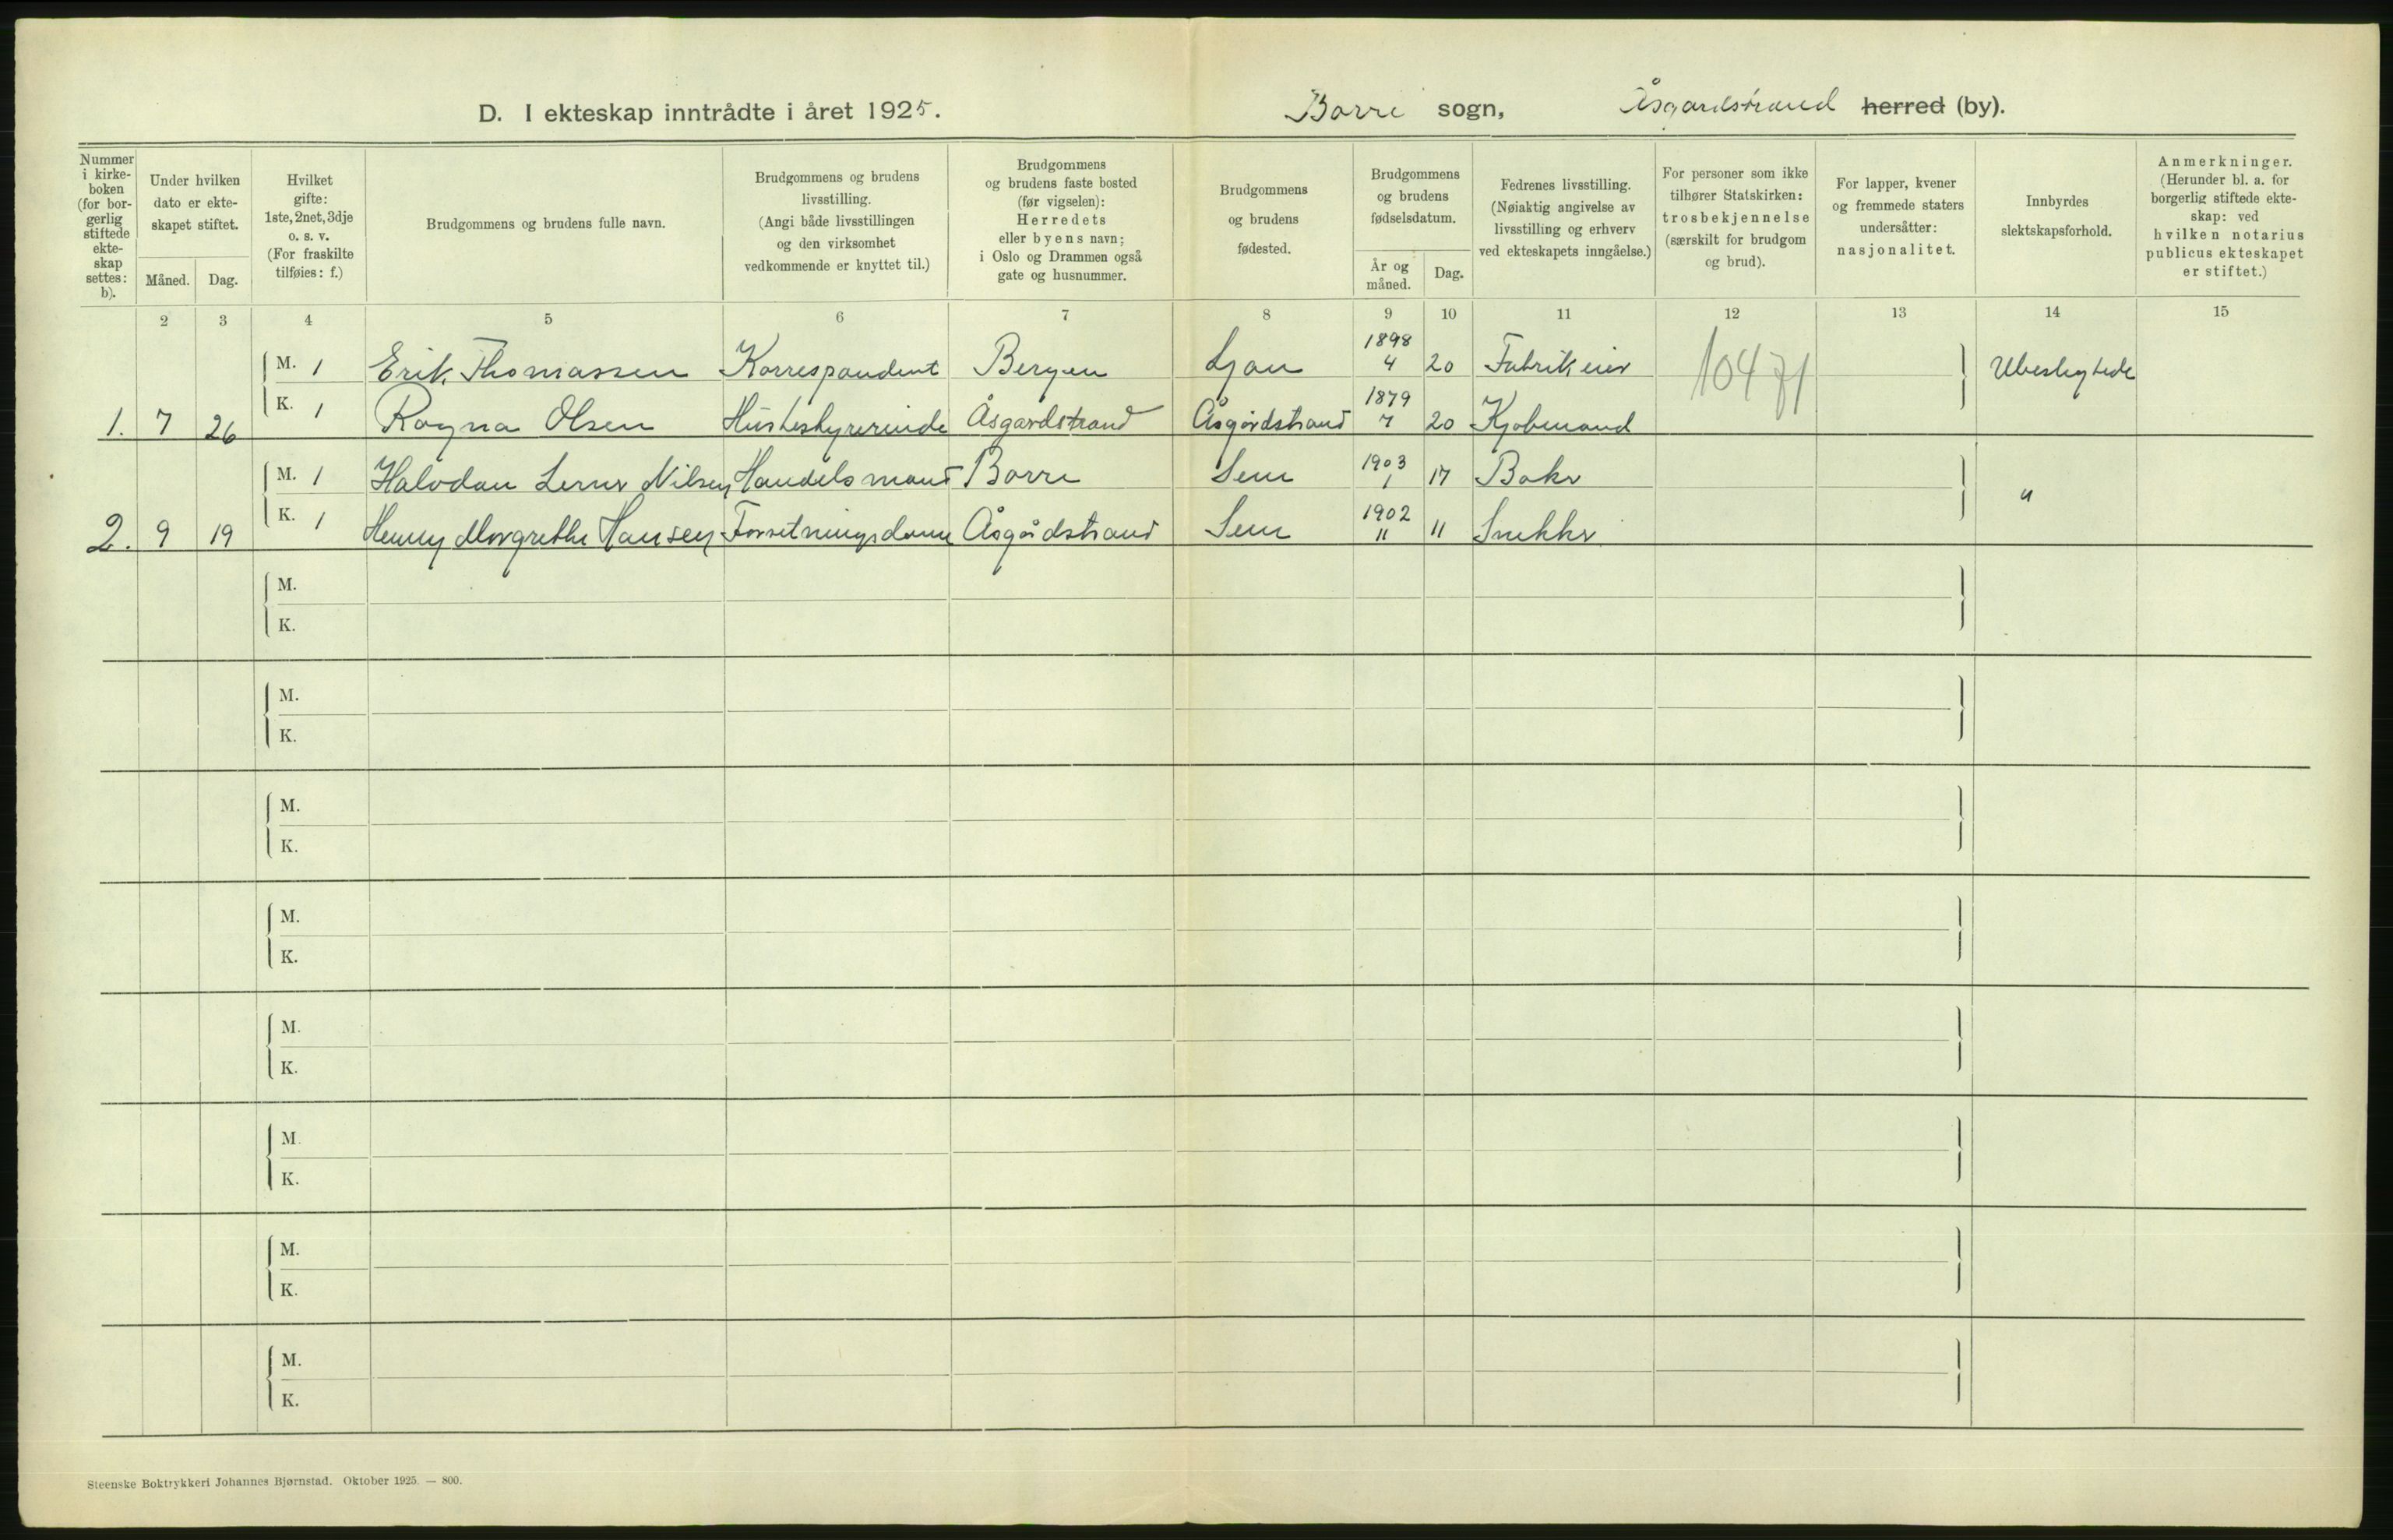 D. I ekteskap inntrådte i året 1925. Borre sogn, Åsgardstrand herred (by).
Nummer i kirkeboken (for borgerlig stiftede ekteskap settes: b).
Under hvilken dato er ekteskapet stiftet.
Måned. Dag.
Hvilket gifte: 1ste, 2net, 3dje o. s. v. (For fraskilte tilføies: f.)
Brudgommens og brudens fulle navn.
Brudgommens og brudens livsstilling. (Angi både livsstillingen og den virksomhet vedkommende er knyttet til.)
Brudgommens og brudens faste bosted (før vigselen): Herredets eller byens navn; i Oslo og Drammen også gate og husnummer.
Brudgommens og brudens fødested.
Brudgommens og brudens fødselsdatum.
År og måned. Dag.
Fedrenes livsstilling. (Nøiaktig angivelse av livsstilling og erhverv ved ekteskapets inngåelse.)
For personer som ikke tilhører Statskirken: trosbekjennelse (særskilt for brudgom og brud).
For lapper, kvener og fremmede staters undersåtter: nasjonalitet.
Innbyrdes slektskapsforhold.
Anmerkninger. (Herunder bl. a. for borgerlig stiftede ekteskap: ved hvilken notarius publicus ekteskapet er stiftet.)
2 3 4 5 6 7 8 9 10 11 12 13 14 15
M. 1 Erik Thomassen Korrespondent Bergen Ljan 1898 4 20 Fabrikeier 10471 Ubeslegtede
1. 7 26 K. 1 Ragna Olsen Husbestyrerinde Åsgardstrand Åsgårdstrand 1879 7 20 Kjøbmand
M. 1 Halvdan Nilsen Handelsmand Borre Sem 1903 1 17 Baker "
2. 9 19 K. 1 Henny Margrethe Hansen Forretningsdame Åsgårdstrand Sem 1902 11 11 Snekker
M.
K.
M.
K.
M.
K.
M.
K.
M.
K.
M.
K.
M.
K.
M.
K.
Steenske Boktrykkeri Johannes Bjørnstad. Oktober 1925. — 800.